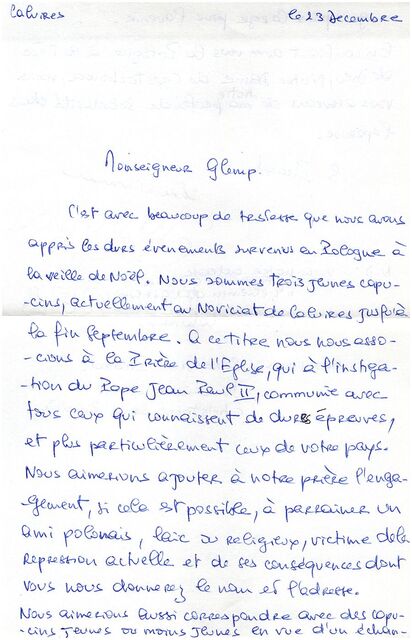 Caluires le 23 Decembre
Monseigneur Glemp.
C'est avec beaucoup de tristesse que nous avons
appris les durs événements survenus en Pologne à
la veille de Noël. Nous sommes trois jeunes capu-
-cins, actuellement au Noviciat de Caluires jusqu'à
la fin Septembre. A ce titre nous nous asso-
-cions à la Prière de l'Eglise, qui à l'instiga-
-tion du Pape Jean Paul II, communie avec
tous ceux qui connaissent de dures épreuves,
et plus particulièrement ceux de votre pays.
Nous aimerions ajouter à notre prière l'enga-
-gement, si cela est possible, à parrainer un
ami polonais, laïc ou religieux, victime de la
repression actuelle et de ses conséquences dont
vous nous donnerez le nom et l'adresse.
Nous aimerions aussi correspondre avec des capu-
-cins jeunes ou moins jeunes en vue d'un échan-